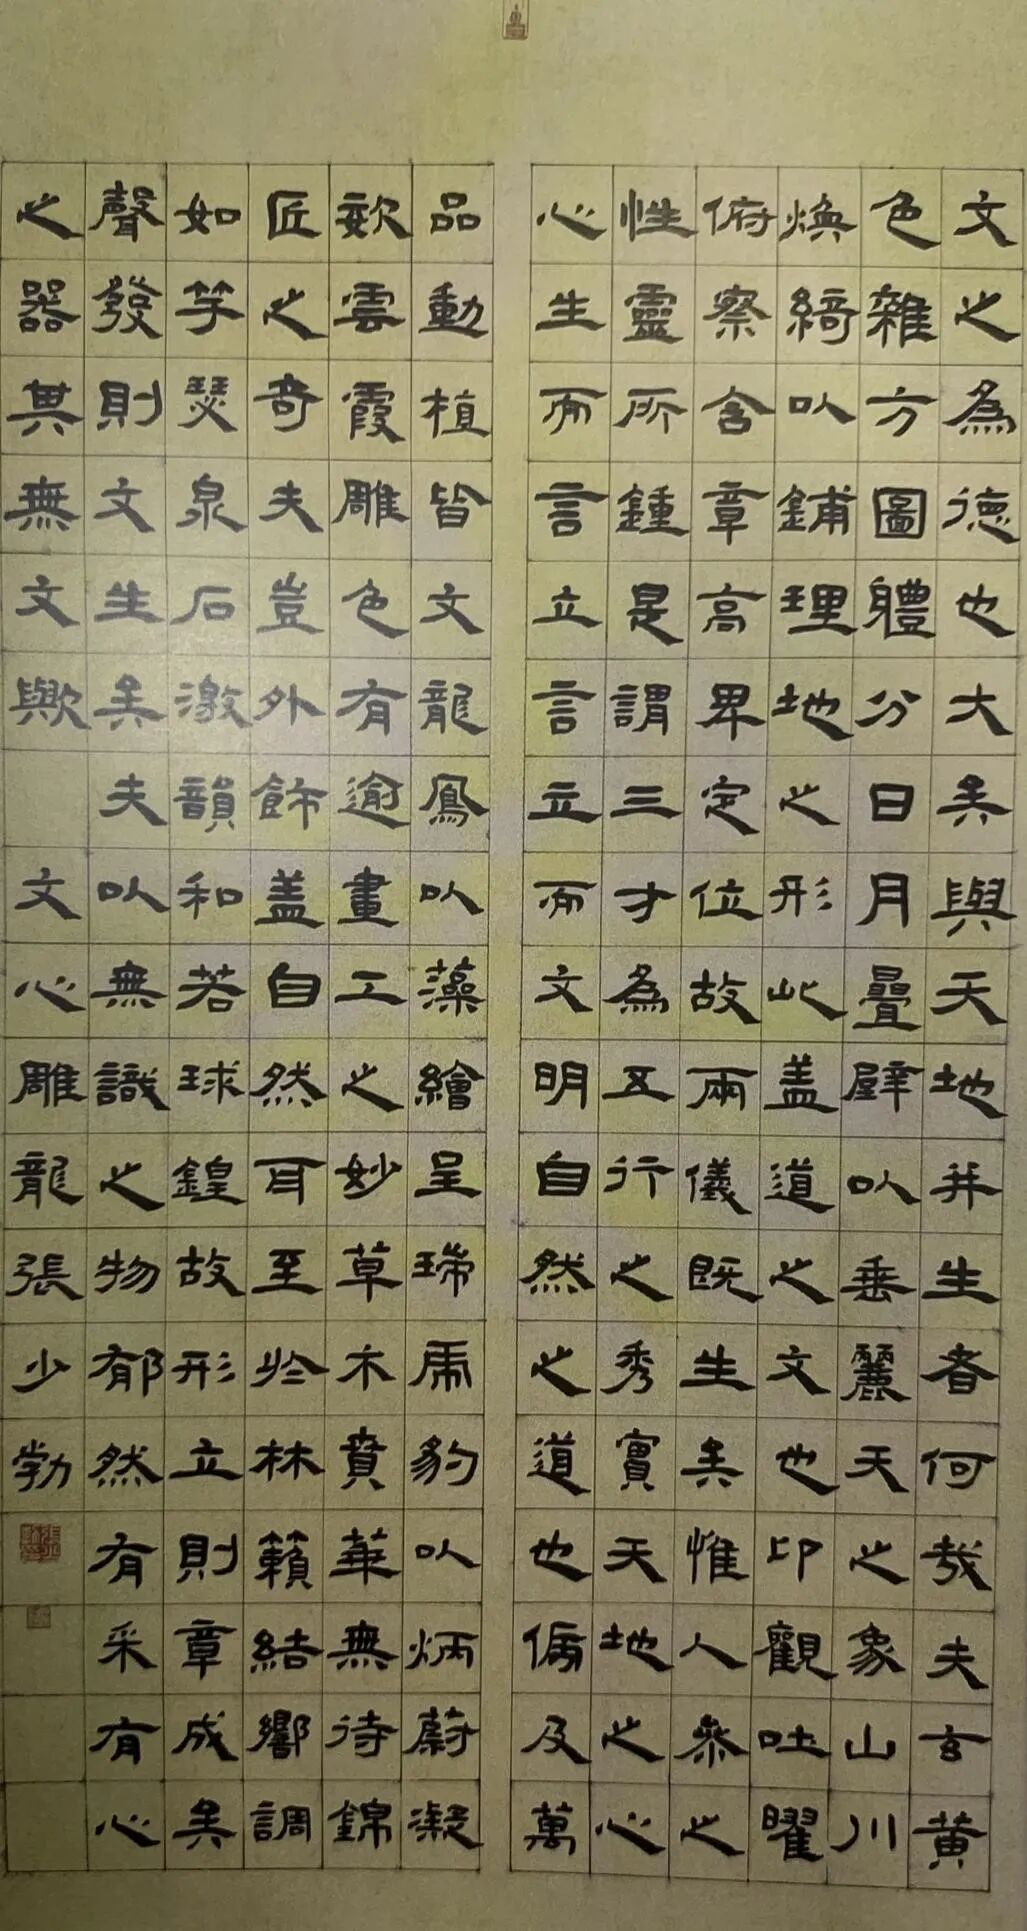 文之為德也大矣與天地并生者何哉夫玄黃
色雜方圖體分日月疊璧以垂麗天之象山川
煥綺以鋪理地之形此盖道之文也卬觀吐曜
俯察含章高卑定位故兩儀既生矣惟人參之
性靈所鍾是謂三才為五行之秀實天地之心
心生而言立言立而文明自然之道也傍及萬
品動植皆文龍鳳以藻繪呈瑞虎豹以炳蔚凝
姿雲霞雕色有逾畫工之妙草木賁華無待錦
匠之奇夫豈外飾盖自然耳至於林籟結響調
如竽瑟泉石激韻和若球鍠故形立則章成矣
聲發則文生矣夫以無識之物郁然有采有心
之器其無文歟 文心雕龍張少勃